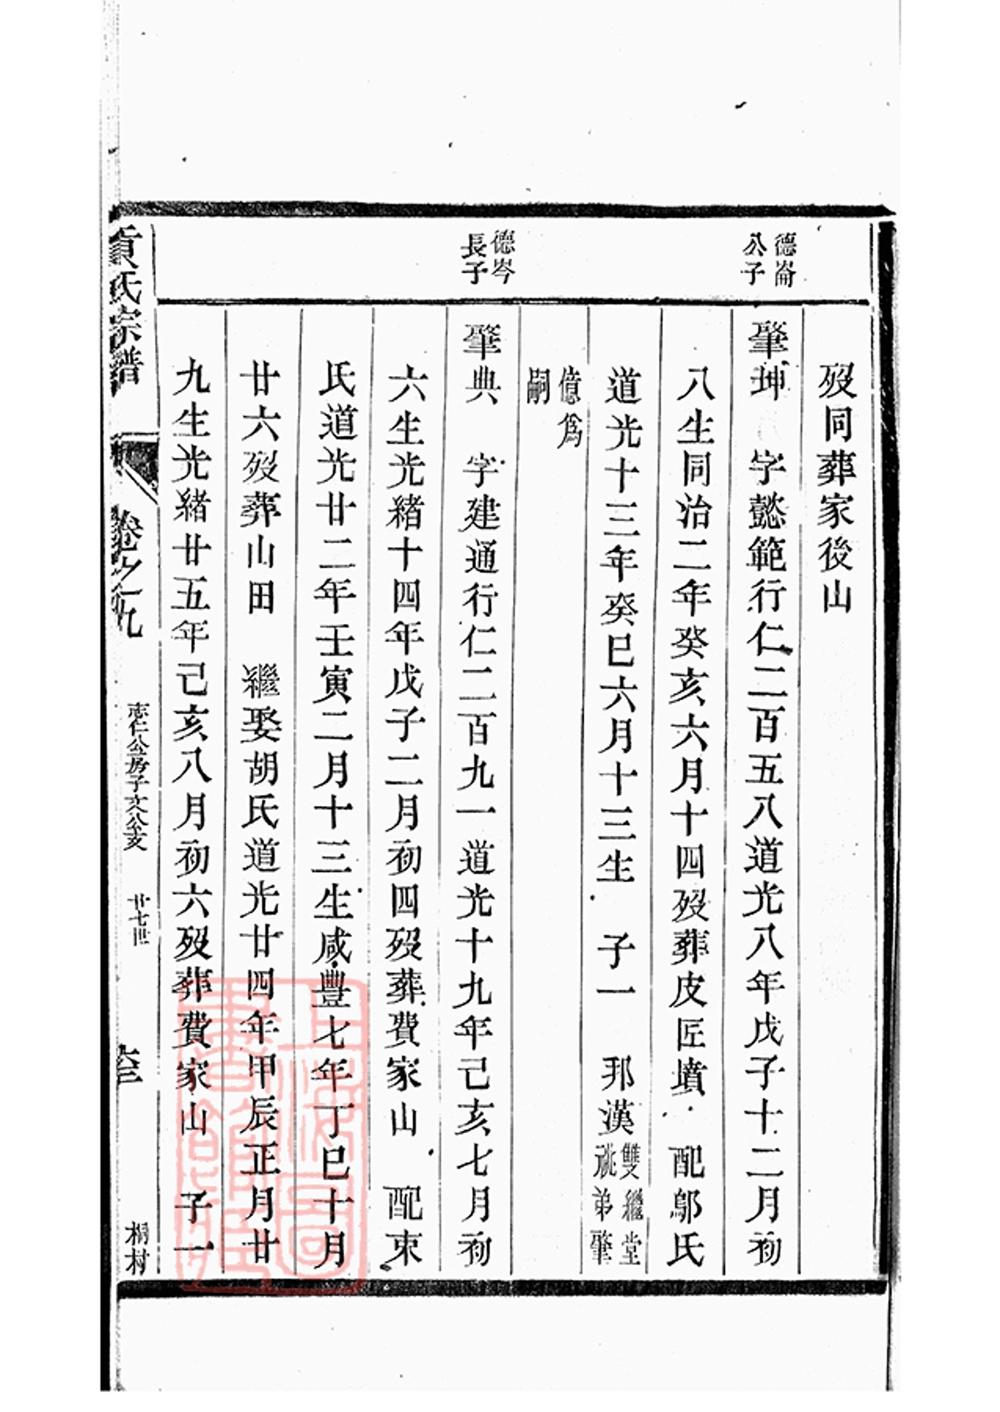 歿同葬家後山
德崙
公子
肇坤　字懿範行仁二百五八道光八年戊子十二月初
八生同治二年癸亥六月十四歿葬皮匠墳　配鄔氏
道光十三年癸巳六月十三生　子一　邦漢雙繼堂
祧弟肇
億爲
嗣
德岑
長子
肇典　字建通行仁二百九一道光十九年己亥七月初
六生光緒十四年戊子二月初四歿葬費家山　配束
氏道光廿二年壬寅二月十三生咸豐七年丁巳十月
廿六歿葬山田　繼娶胡氏道光廿四年甲辰正月廿
九生光緒廿五年己亥八月初六歿葬費家山　子一
貢氏宗譜
卷之九
志仁公房子文公支
廿七世
桐村